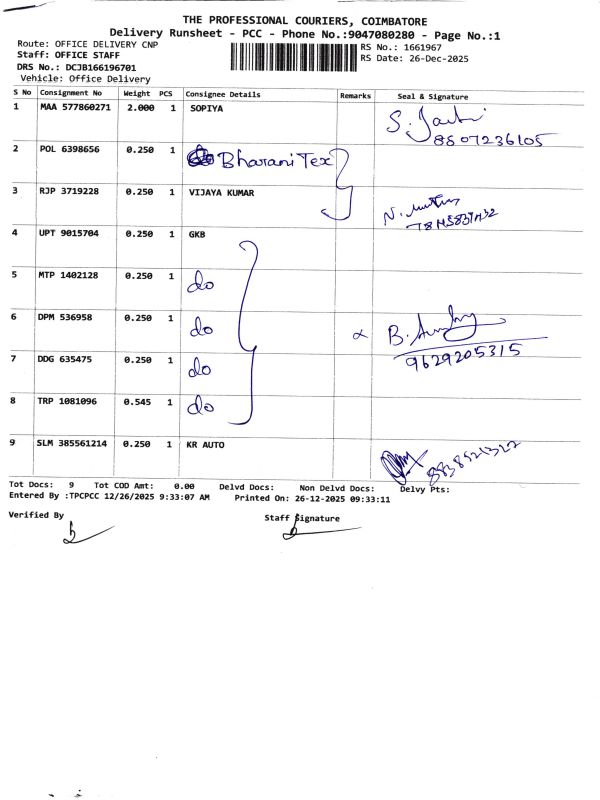 THE PROFESSIONAL COURIERS, COIMBATORE
Delivery Runsheet - PCC - Phone No.:9047080280 - Page No.:1
Route: OFFICE DELIVERY CNP
Staff: OFFICE STAFF
DRS No.: DCJB166196701
Vehicle: Office Delivery
RS No.: 1661967
RS Date: 26-Dec-2025
S No Consignment No Weight PCS Consignee Details Remarks Seal & Signature
1 MAA 577860271 2.000 1 SOPIYA
8807236105
2 POL 6398656 0.250 1 Bharani Tex
3 RJP 3719228 0.250 1 VIJAYA KUMAR
4 UPT 9015704 0.250 1 GKB
5 MTP 1402128 0.250 1 do
6 DPM 536958 0.250 1 do
9629205315
7 DDG 635475 0.250 1 do
8 TRP 1081096 0.545 1 do
9 SLM 385561214 0.250 1 KR AUTO
Tot Docs: 9 Tot COD Amt: 0.00 Delvd Docs: Non Delvd Docs: Delvy Pts:
Entered By :TPCPCC 12/26/2025 9:33:07 AM Printed On: 26-12-2025 09:33:11
Verified By Staff Signature